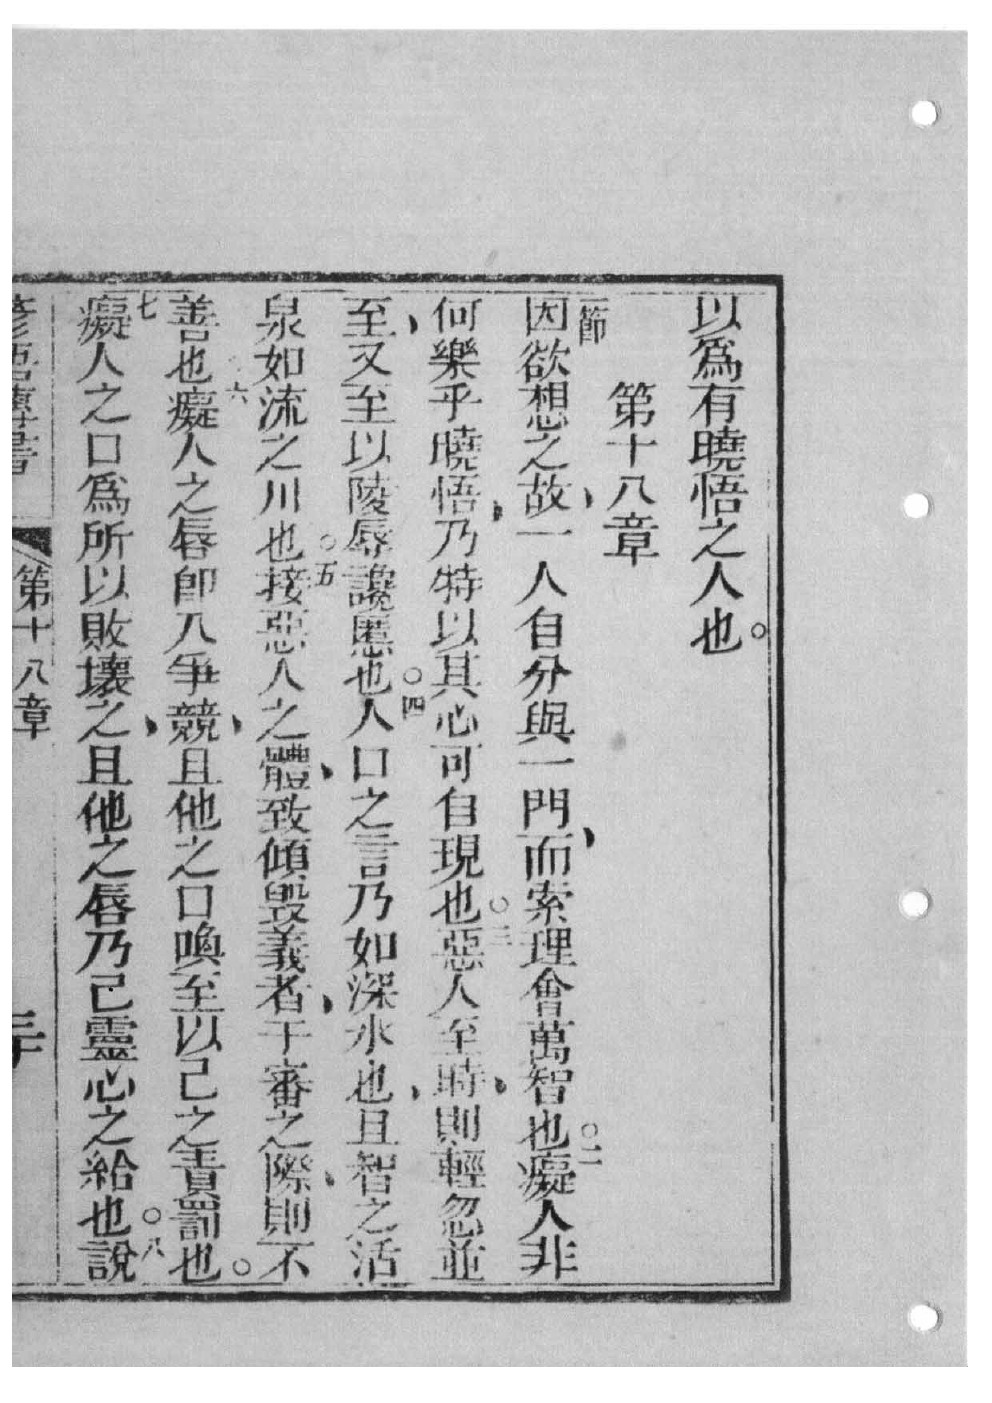 以爲有曉悟之人也。
第十八章
一節
因欲想之故、一人自分與一門、而索理會萬智也。二癡人非
何樂乎曉悟、乃特以其心可自現也。三惡人至時、則輕忽並
至、又至以陵辱讒慝也。四人口之言乃如深水也、且智之活
泉如流之川也。五接惡人之體、致傾毀義者、于審之際、則不
善也。六癡人之唇卽入爭競、且他之口喚至以己之責罰也。
七癡人之口爲所以敗壞之、且他之唇乃己靈心之給也。八說
第十八章